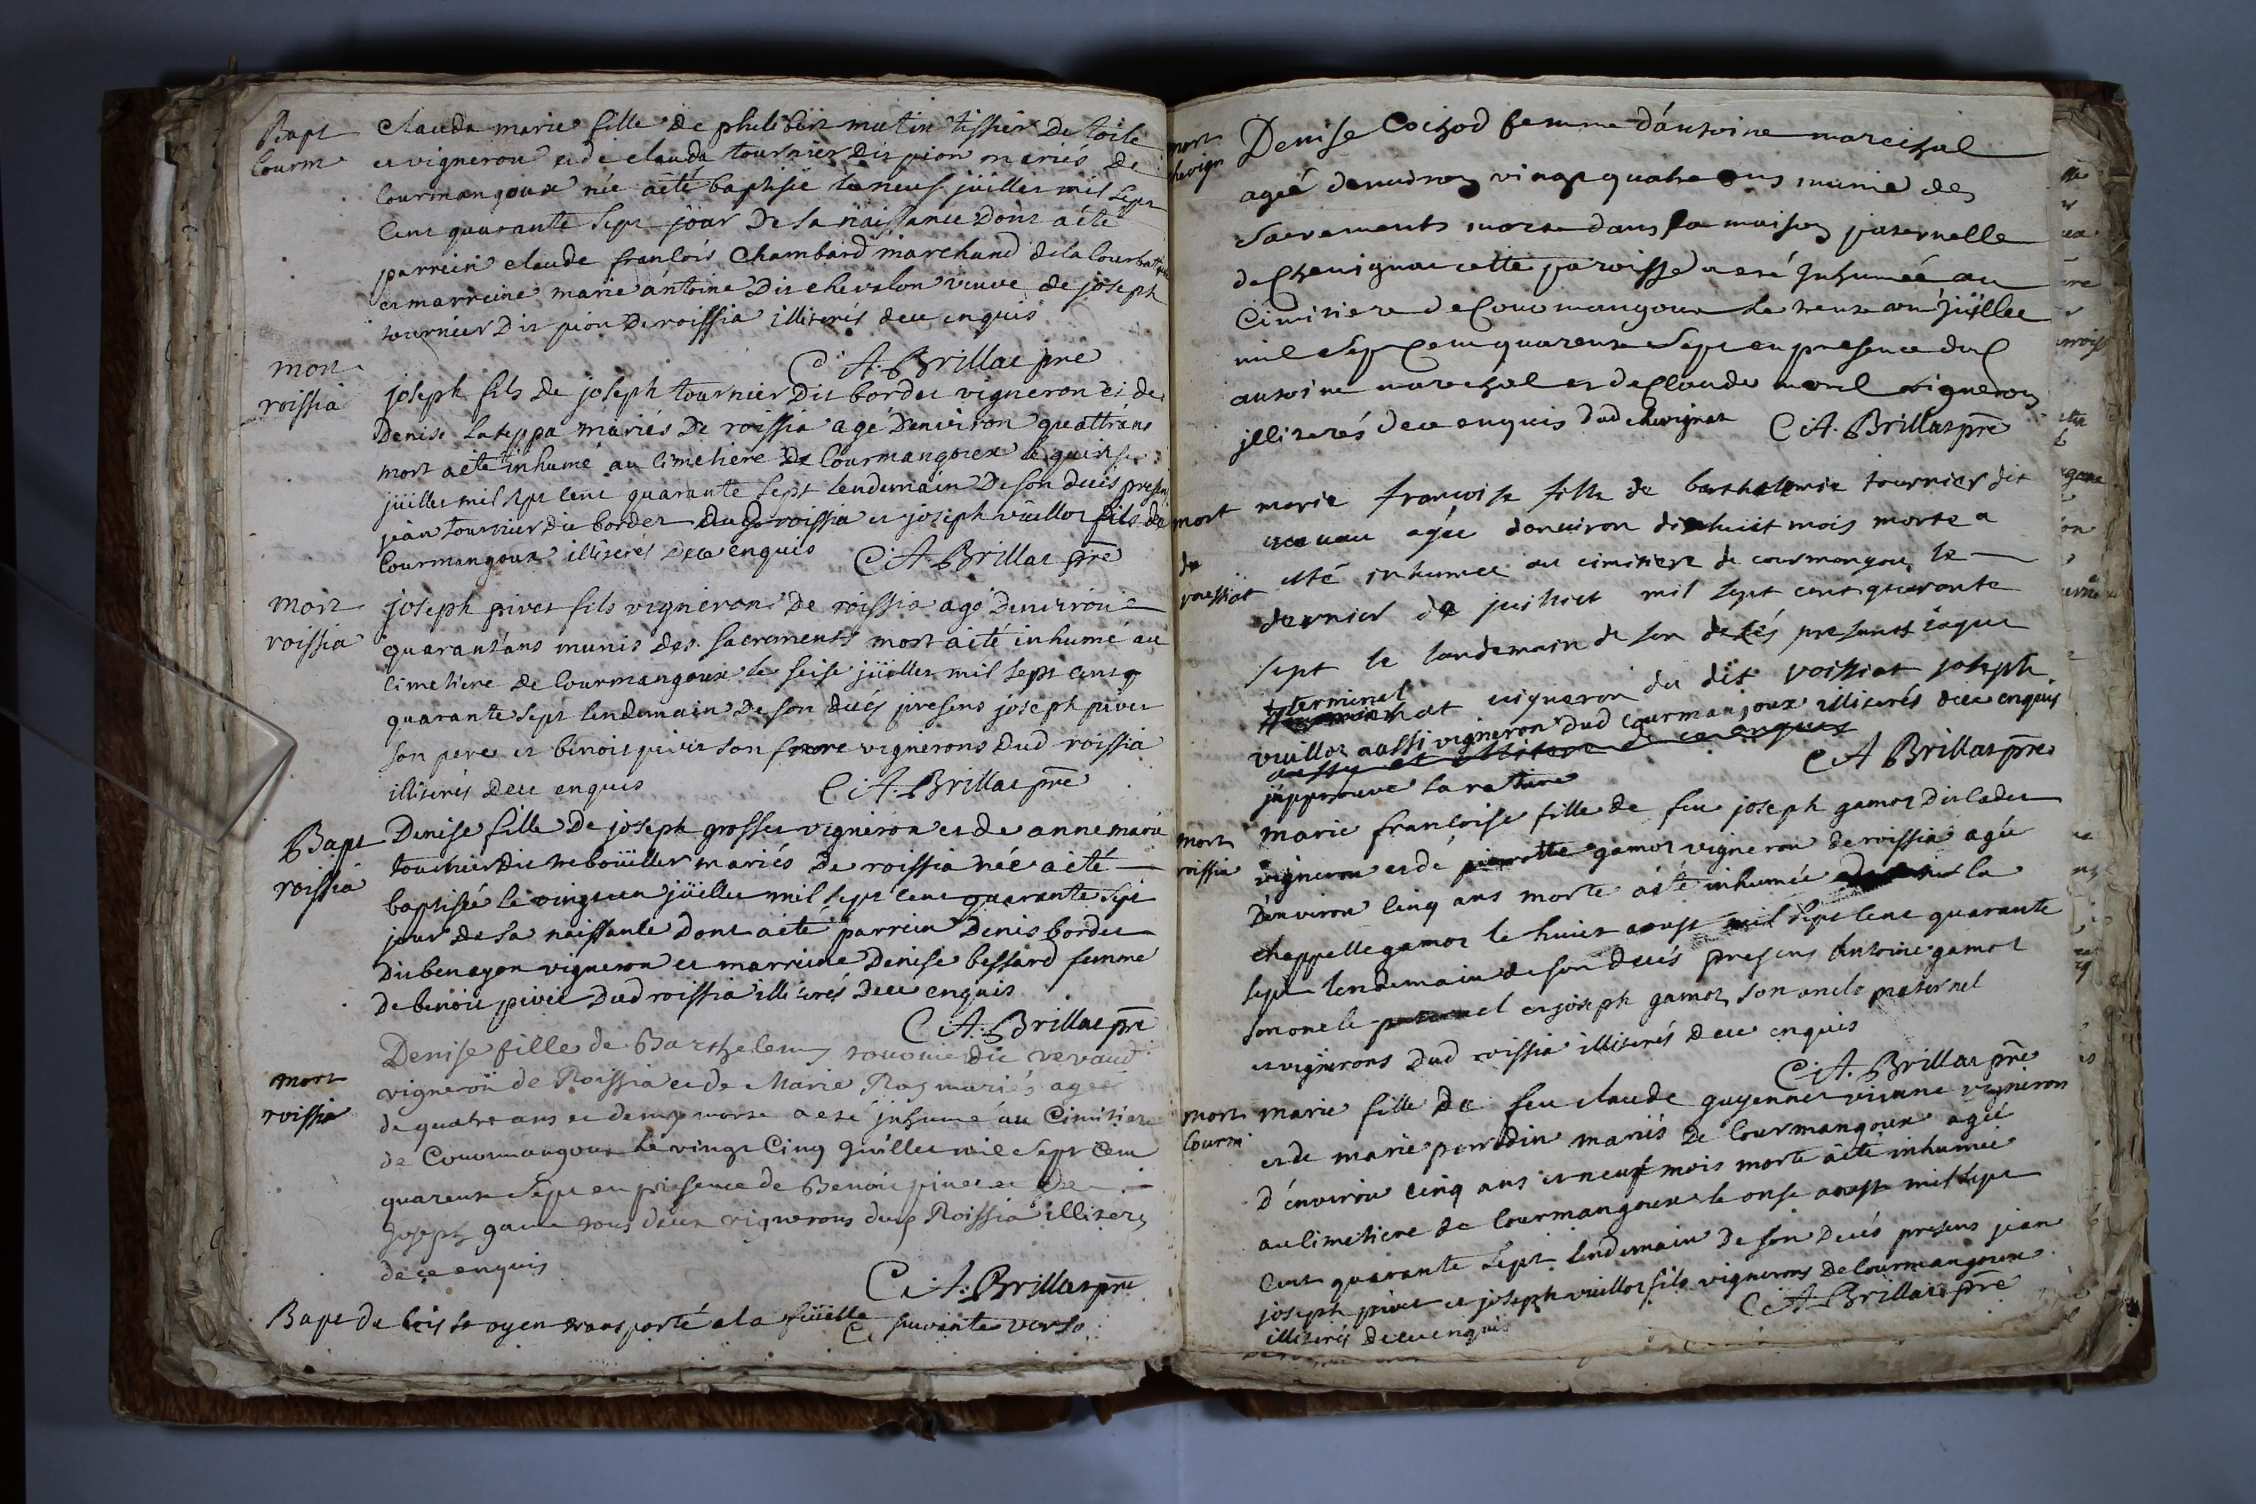 Bapt
Courm
Clauda marie fille de philibert mutin tissier De toile
et vigneron et de clauda tournier dit pion mariés de
Courmangoux née aété baptisée le neuf juillet mil sept
Cent quarante sept jour De sa naissance Dont aété
parrein claude francois Chambard marchand de la
et marreine marie antoine Dit chevalon veuve de joseph
tournier Dit pion De roissia illiterés dece enquis
C A. Brillat pre
mort
roissia
joseph fils de joseph tournier Dit bordet vigneron et de
Denise mariés De roissia agé Denviron quattr'ans
mort aété inhumé au Cimetiere De Courmangoux le quinse
juillet mil sept Cent quarante sept lendemain De son decés presens
jean tournier dit bordet dud roissia et joseph vuillot fils de
Courmangoux illiterés Dece enquis C. A. Brillat pre
mort
roissia
joseph pivet fils vigneron De roissia agé Denviron
quarant'ans munis des sacrements mort aété inhumé au
Cimetiere De Courmangoux le seise juillet mil sept cent q
quarante sept lendemain De son décés presens joseph pivet
son pere et benoit pivet son frere vignerons Dud roissia
illiterés Dece enquis C. A. Brillat pre
Bapt
roissia
Denise fille De joseph grosset vigneron et de anne marie
tournier dit rebouillet mariés De roissia née aété
baptisée le vingt un juillet mil sept Cent quarante sept
jour de sa naissance Dont aété parrein Denis bordet
Dit vigneron et marreine Denise bessard femme
De benoit pivet Dud roissia illiterés Dece enquis
C. A. Brillat pre
mort
roissia
Denise fille de Barthelemy tournier dit vevaud
vigneron de Roissia et de Marie mariés agée
de quatre ans et demy morte a eté inhumé au Cimitiere
de Courmangoux le vingt Cinq juillet mil Sept Cent
quarente Sept en presence de Benoit pivet et de
Joseph tous deux vignerons dud Roissia illiterés
de ce enquis
C. A. Brillat pre
Bapt de transporté a la feüille suivante verso
mort
chevign
Denise Cochod femme d'antoine marechal
ageé denviron vingt quatre ans munie des
Sacrements morte dans la maison paternelle
de Chevignat cette paroisse a eté Inhumée au
Cimitiere de Courmangoux le trente un juillet
mil Sept Cent quarente Sept en presence dud
antoine marechal et de Claude morel vignerons
illiterés dece enquis dud chevignat C. A. Brillat pre
mort
de
roissiat
marie francoise fille de barthelemie tournier dit
vevau agée denviron dixhuit mois morte a
etté inhumée au cimitiere de courmangou le
dernier de juilliet mil sept cent quarante
sept le landemain de son decés presants jaque
terminet
vigneron du dit roissiat joseph
vuillot aussi vigneron dud Courmangoux illiterés dece enquis
japprouve la rature
C A Brillat pre
mort
roissia
marie francoise fille de feu joseph gamot dit cadet
vigneron et de pierrotte gamot vigneron de roissia agée
D'environ cinq ans morte aété inhumée la
chappelle gamot le huict aoust mil sept Cent quarante
sept lendemain de son decés presens Antoine gamot
son oncle et joseph gamot son oncle paternel
et vignerons Dud roissia illiterés dece enquis
C. A. Brillat pre
mort
Courm
marie fille De feu claude guyennet vigneron
et de marie perrodin mariés De Courmangoux agée
D'environ cinq ans et neuf mois morte aété inhumée
au Cimetiere de Courmangoux le onse aoust mil sept
Cent quarante sept lendemain De son Decés presens jean
joseph pivet et joseph vuillot fils vignerons De Courmangoux
illiterés Dece enquis C. A. Brillat pre